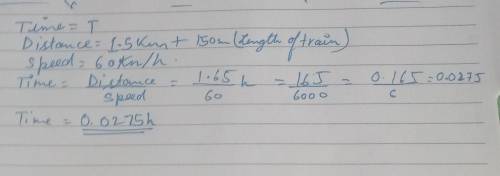 Time = T
Distance = 1.5Km + 150m (Length of train)
Speed = 60Km/h.
Time = Distance/Speed = 1.65/60 h = 165/6000 = 0.165/6 = 0.0275
Time = 0.0275h